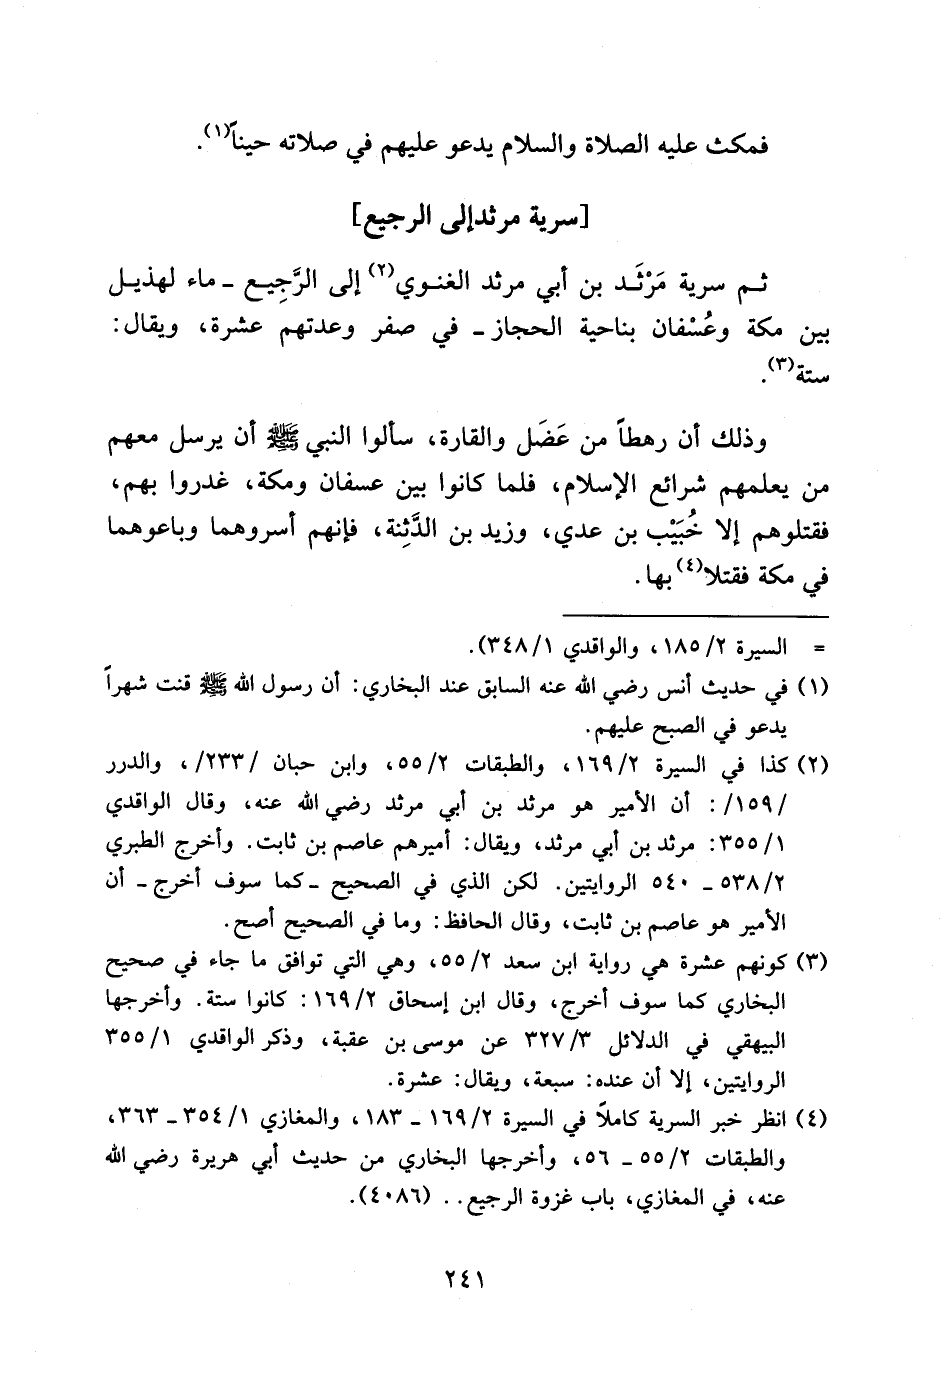 فمكث عليه الصلاة والسلام يدعو عليهم في صلاته حيناً(١).
[سرية مرثدإلى الرجيع]
ثم سرية مَرْثَد بن أبي مرثد الغنوي(٢) إلى الرَّجِيع ـ ماء لهذيل
بين مكة وعُسْفان بناحية الحجاز ـ في صفر وعدتهم عشرة، ويقال:
ستة(٣).
وذلك أن رهطاً من عَضَل والقارة، سألوا النبي ﷺ أن يرسل معهم
من يعلمهم شرائع الإسلام، فلما كانوا بين عسفان ومكة، غدروا بهم،
فقتلوهم إلا خُبَيْب بن عدي، وزيد بن الدَّثِنة، فإنهم أسروهما وباعوهما
في مكة فقتلا(٤) بها.
= السيرة ٢/ ١٨٥، والواقدي ١/ ٣٤٨).
(١) في حديث أنس رضي الله عنه السابق عند البخاري: أن رسول الله ﷺ قنت شهراً
يدعو في الصبح عليهم.
(٢) كذا في السيرة ٢/ ١٦٩، والطبقات ٢/ ٥٥، وابن حبان /٢٣٣/، والدرر
/١٥٩/: أن الأمير هو مرثد بن أبي مرثد رضي الله عنه، وقال الواقدي
١/ ٣٥٥: مرثد بن أبي مرثد، ويقال: أميرهم عاصم بن ثابت. وأخرج الطبري
٢/ ٥٣٨ ـ ٥٤٠ الروايتين. لكن الذي في الصحيح ـ كما سوف أخرج ـ أن
الأمير هو عاصم بن ثابت، وقال الحافظ: وما في الصحيح أصح.
(٣) كونهم عشرة هي رواية ابن سعد ٢/ ٥٥، وهي التي توافق ما جاء في صحيح
البخاري كما سوف أخرج، وقال ابن إسحاق ٢/ ١٦٩: كانوا ستة. وأخرجها
البيهقي في الدلائل ٣/ ٣٢٧ عن موسى بن عقبة، وذكر الواقدي ١/ ٣٥٥
الروايتين، إلا أن عنده: سبعة، ويقال: عشرة.
(٤) انظر خبر السرية كاملاً في السيرة ٢/ ١٦٩ ـ ١٨٣، والمغازي ١/ ٣٥٤ ـ ٣٦٣،
والطبقات ٢/ ٥٥ ـ ٥٦، وأخرجها البخاري من حديث أبي هريرة رضي الله
عنه، في المغازي، باب غزوة الرجيع.. (٤٠٨٦).
٢٤١